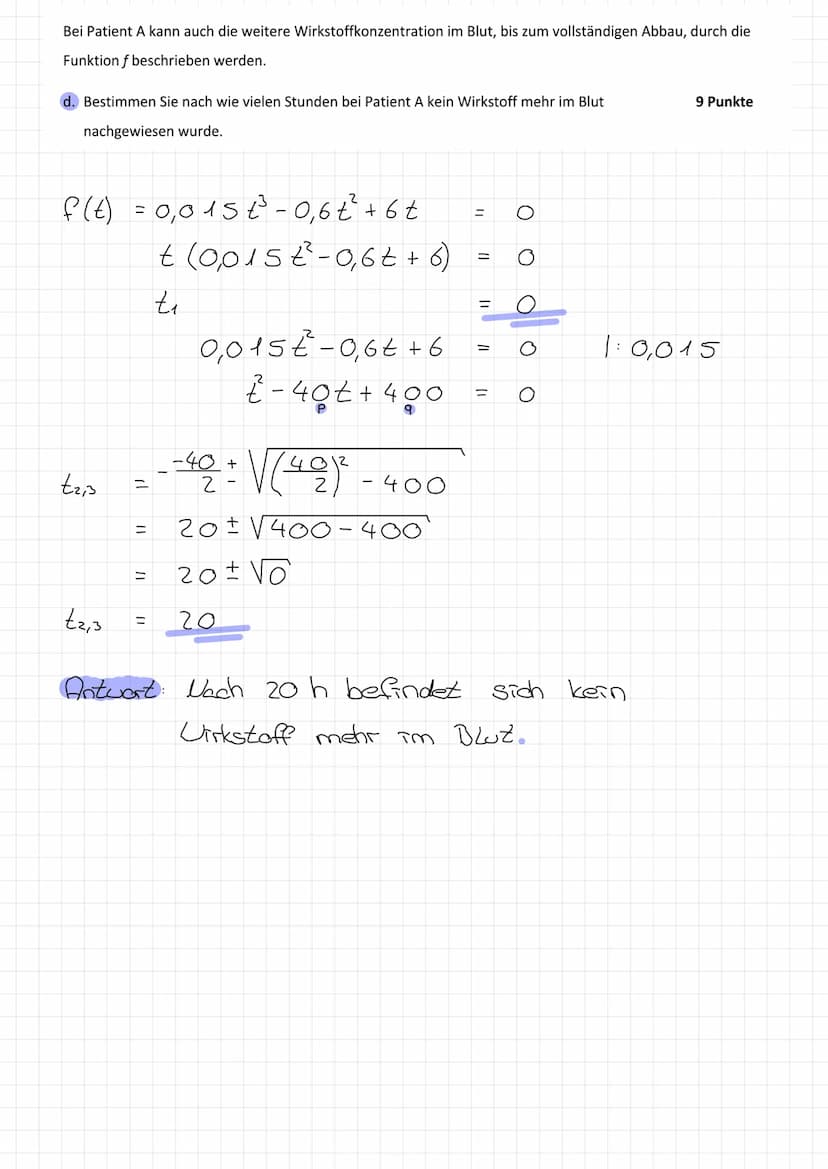 Bei Patient A kann auch die weitere Wirkstoffkonzentration im Blut, bis zum vollständigen Abbau, durch die
Funktion f beschrieben werden.
d. Bestimmen Sie nach wie vielen Stunden bei Patient A kein Wirkstoff mehr im Blut 9 Punkte
nachgewiesen wurde.
f(t) = 0,015t³ - 0,6t² + 6t = 0
t (0,015t² - 0,6t + 6) = 0
t₁ = 0
0,015t² - 0,6t + 6 = 0 |: 0,015
t² - 40t + 400 = 0
p q
t₂,₃ = - -40/2 ± √((40/2)² - 400)
= 20 ± √(400 - 400)
= 20 ± √0
t₂,₃ = 20
Antwort: Nach 20 h befindet sich kein
Wirkstoff mehr im Blut.